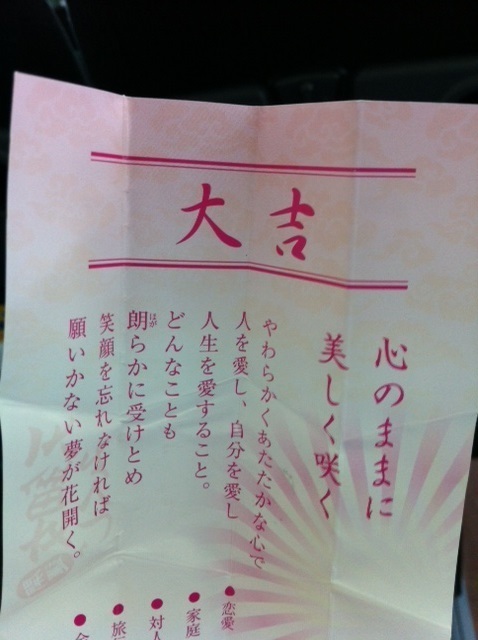 大吉
心のままに
美しく咲く
やわらかくあたたかな心で
人を愛し、自分を愛し
人生を愛すること。
どんなことも
朗らかに受けとめ
笑顔を忘れなければ
願いかない夢が花開く。
●恋愛
●家庭
●対人
●旅